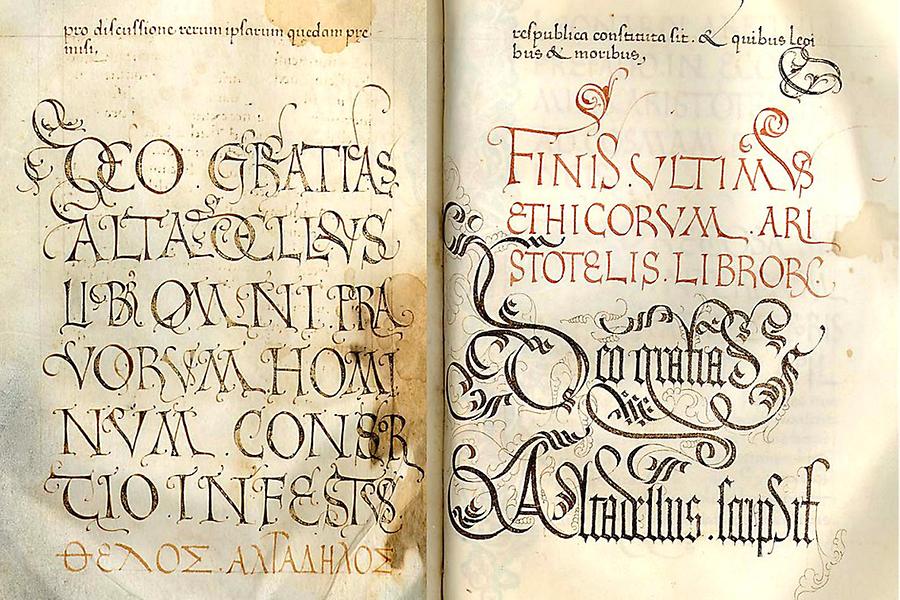 pro discussione rerum ipsarum quedam pre
misi.
DEO . GRATIAS
ALTADELLVS
LIBRI OMNI PRA
VORVM HOMI
NVM CONSOR
TIO.INFESTVS
ΘΕΛΟΣ . ΑΛΤΑΔΗΛΟΣ.
respublica constituta sit. & quibus Legi
bus & moribus,
FINIS.VLTIMVS
ETHICORVM . ARI
STOTELIS.LIBRORC.
Deo gratias
Altadellus . scripsit